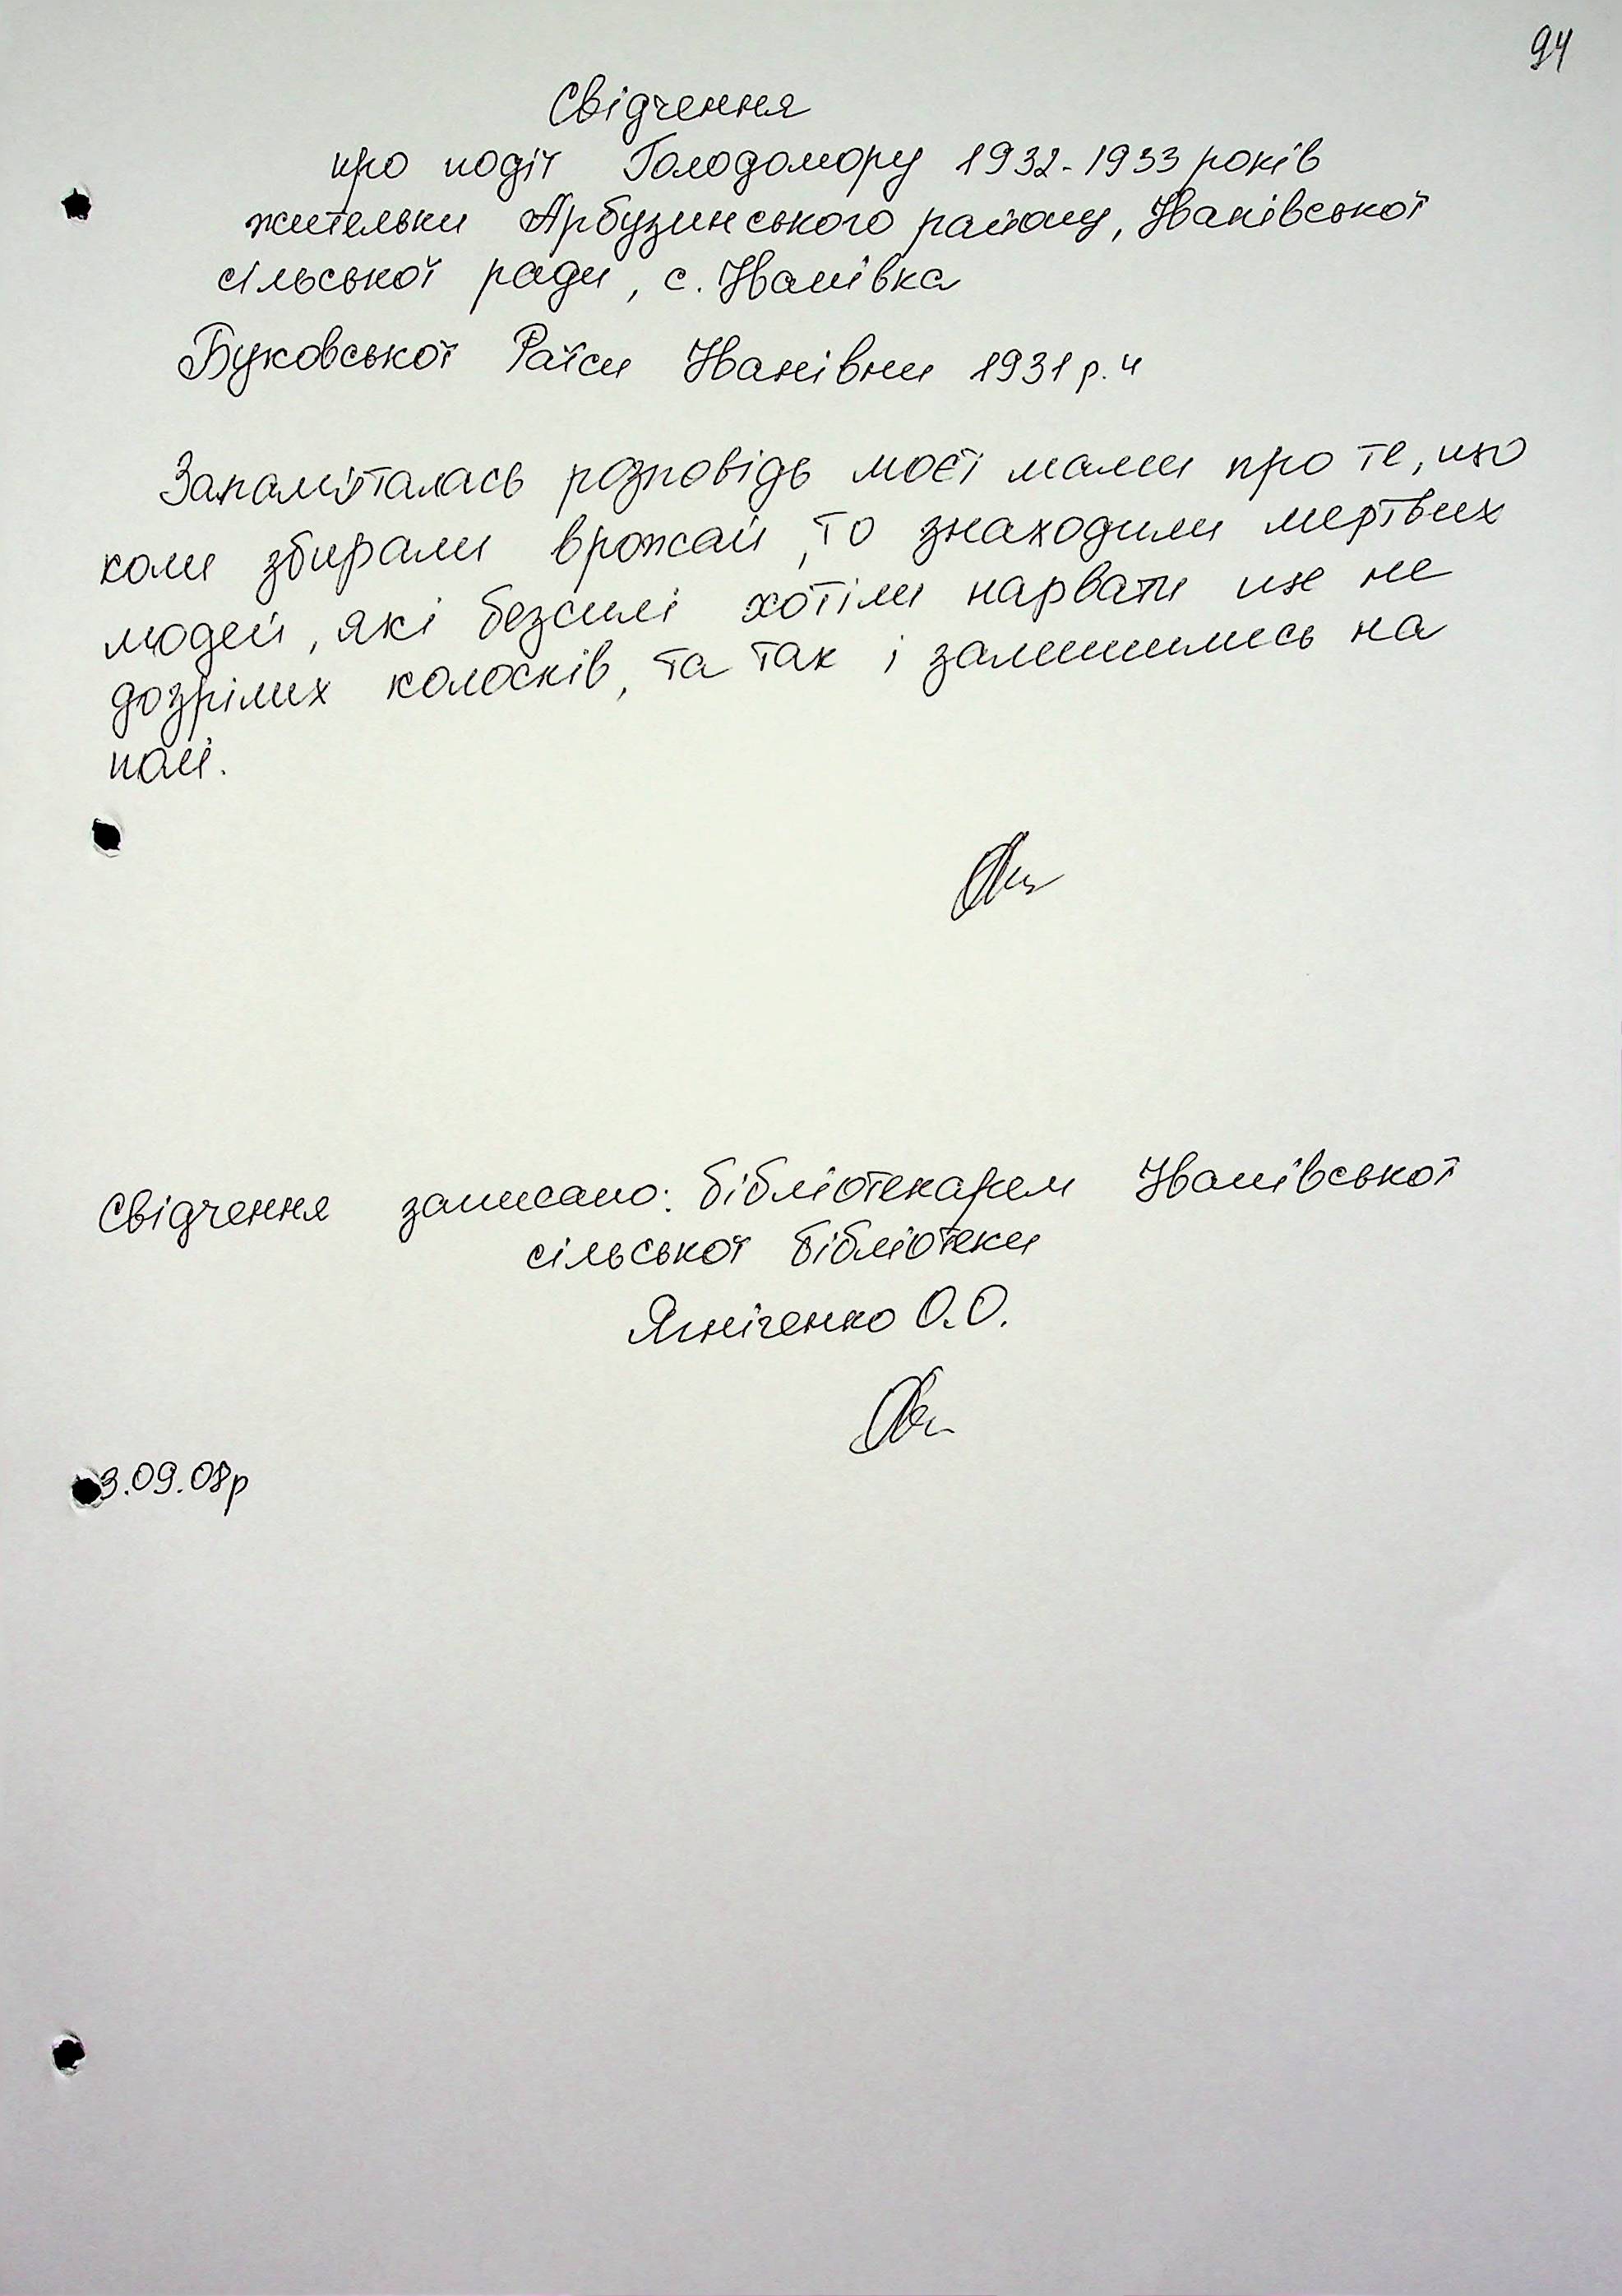 94
Свідчення
про події Голодомору 1932-1933 років
жительки Арбузинського району, Іванівської
сільської ради, с. Іванівка
Буковської Раїси Іванівни 1931 р. н
Запам'яталась розповідь моєї мами про те, що
коли збирали врожай, то знаходили мертвих
людей, які безсилі хотіли нарвати ще не
дозрілих колосків, та так і залишились на
полі.
Свідчення записано: бібліотекарем Іванівської
сільської бібліотеки
Ягніченко О.О.
3.09.08р